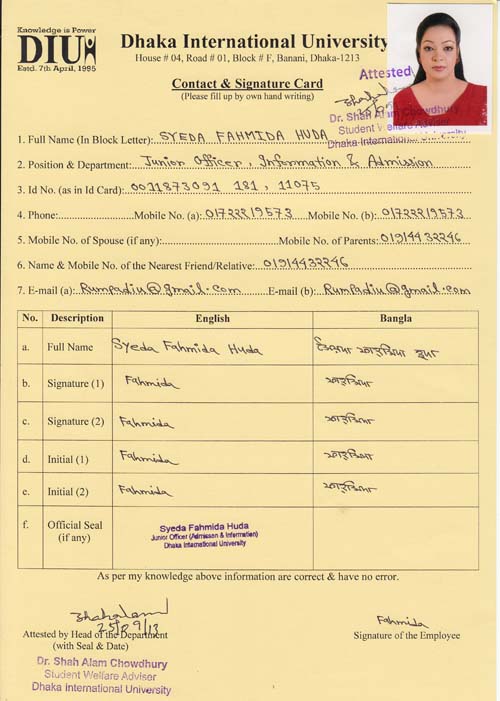 Knowledge is Power
DIU
Estd. 7th April, 1995
Dhaka International University
House # 04, Road # 01, Block # F, Banani, Dhaka-1213
Contact & Signature Card
(Please fill up by own hand writing)
Attested
Dr. Shah Alam Chowdhury
Student Welfare Adviser
Dhaka International University
1. Full Name (In Block Letter): SYEDA FAHMIDA HUDA
2. Position & Department: Junior Officer, Information & Admission
3. Id No. (as in Id Card): 0011873091 181, 11075
4. Phone: Mobile No. (a): 01722219573 Mobile No. (b): 01722219573
5. Mobile No. of Spouse (if any): Mobile No. of Parents: 01914432246
6. Name & Mobile No. of the Nearest Friend/Relative: 01914432246
7. E-mail (a): Rumpadiu@gmail.com E-mail (b): Rumpadiu@gmail.com
No. Description English Bangla
a. Full Name Syeda Fahmida Huda সৈয়দা ফাহমিদা হুদা
b. Signature (1) Fahmida ফাহমিদা
c. Signature (2) Fahmida ফাহমিদা
d. Initial (1) Fahmida ফাহমিদা
e. Initial (2) Fahmida ফাহমিদা
f. Official Seal (if any)
Syeda Fahmida Huda
Junior Officer (Admission & Information)
Dhaka International University
As per my knowledge above information are correct & have no error.
Shahalam Fahmida
Attested by Head of the Department Signature of the Employee
(with Seal & Date)
Dr. Shah Alam Chowdhury
Student Welfare Adviser
Dhaka International University